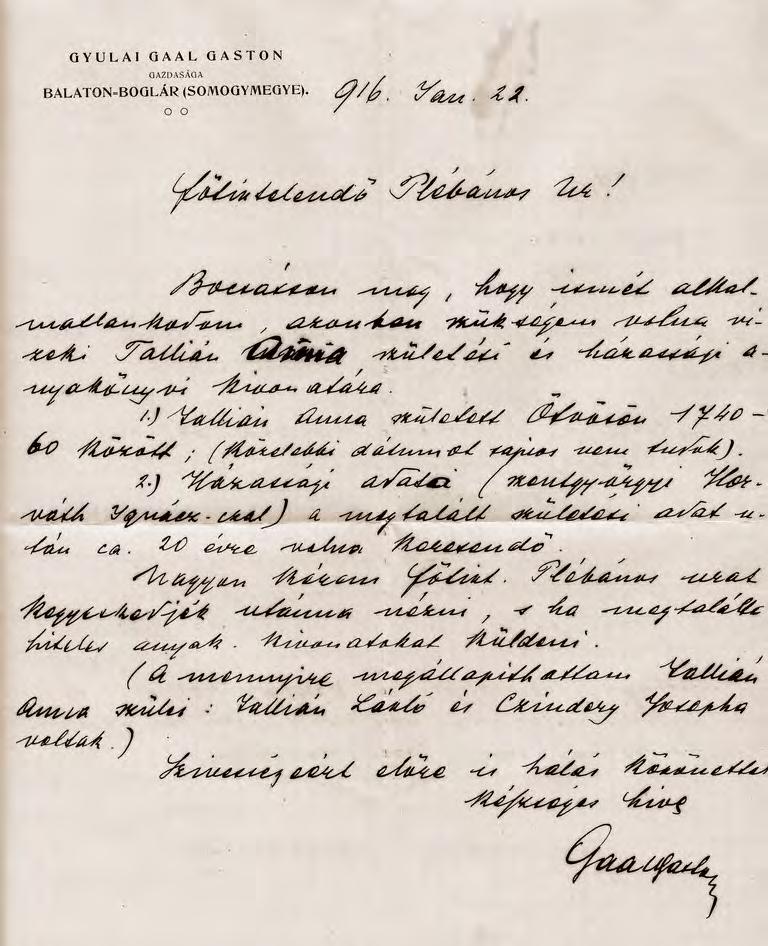 GYULAI GAAL GASTON
GAZDASÁGA
BALATON-BOGLÁR (SOMOGYMEGYE).
916. Jan. 22.
Főtisztelendő Plébános Ur!
Bocsásson meg, hogy ismét alkal-
matlankodom, azonban szükségem volna vi-
zeki Tallián Anna születési és házassági a-
nyakönyvi kivonatára.
1.) Tallián Anna született Ötvösön 1740-
60 között; (közelebbi dátumot sajnos nem tudok).
2.) Házassági adatai (szentgyörgyi Hor-
váth Ignácz-czal) a megtalált születési adat u-
tán ca. 20 évre volna keresendő.
Nagyon kérem főtiszt. Plébános urat
kegyeskedjék utánna nézni, s ha megtalálta
hiteles anyak. kivonatokat küldeni.
(A mennyire megállapithattam Tallián
Anna szülei: Tallián László és Czindery Josepha
voltak.)
Szivességeért előre is hálás köszönettel
készséges hive
Gaal Gaston